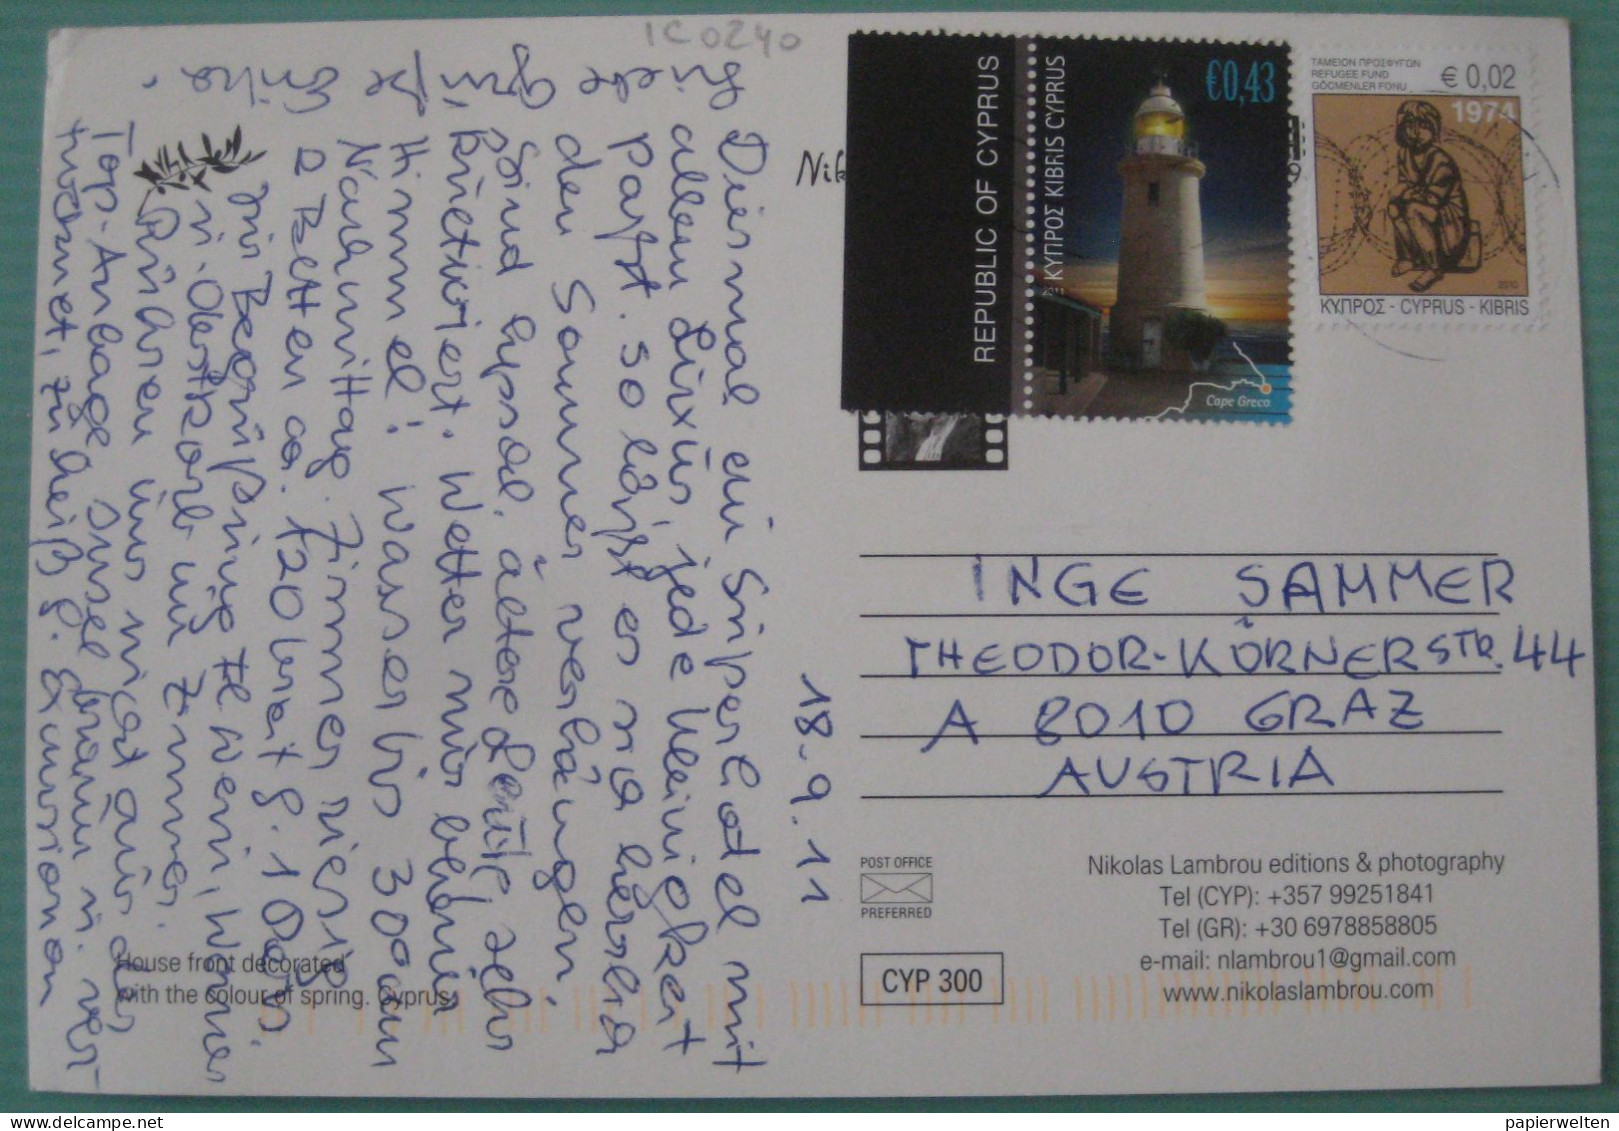 1C0240
REPUBLIC OF CYPRUS
ΚΥΠΡΟΣ KIBRIS CYPRUS
2011
€0,43
Cape Greco
ΤΑΜΕΙΟΝ ΠΡΟΣΦΥΓΩΝ
REFUGEE FUND
GÖCMENLER FONU
€ 0,02
1974
2010
ΚΥΠΡΟΣ - CYPRUS - KIBRIS
Nik
18.9.11
Diesmal ein Superhotel mit
allem Luxus, jede Kleinigkeit
passt. So läßt es sich herrlich
den Sommer verlängern.
Sind hypsch. ältere Leute, sehr
kultiviert. Wetter nur blauer
Himmel! Wasser bis 300 am
Nachmittag. Zimmer riesig
2 Betten ca. 120 breit
Zur Begrüßung Fl. Wein, Wasser
u. Obstkorb im Zimmer.
Rühren uns nicht aus der
Top-Anlage, Insel braun u. ver-
trocknet, zu heiß f. Exkursionen
INGE SAMMER
THEODOR-KÖRNERSTR. 44
A 8010 GRAZ
AUSTRIA
POST OFFICE
PREFERRED
CYP 300
Nikolas Lambrou editions & photography
Tel (CYP): +357 99251841
Tel (GR): +30 6978858805
e-mail: nlambrou1@gmail.com
www.nikolaslambrou.com
House front decorated
with the colour of spring. Cyprus
www.delcampe.net
papierwelten